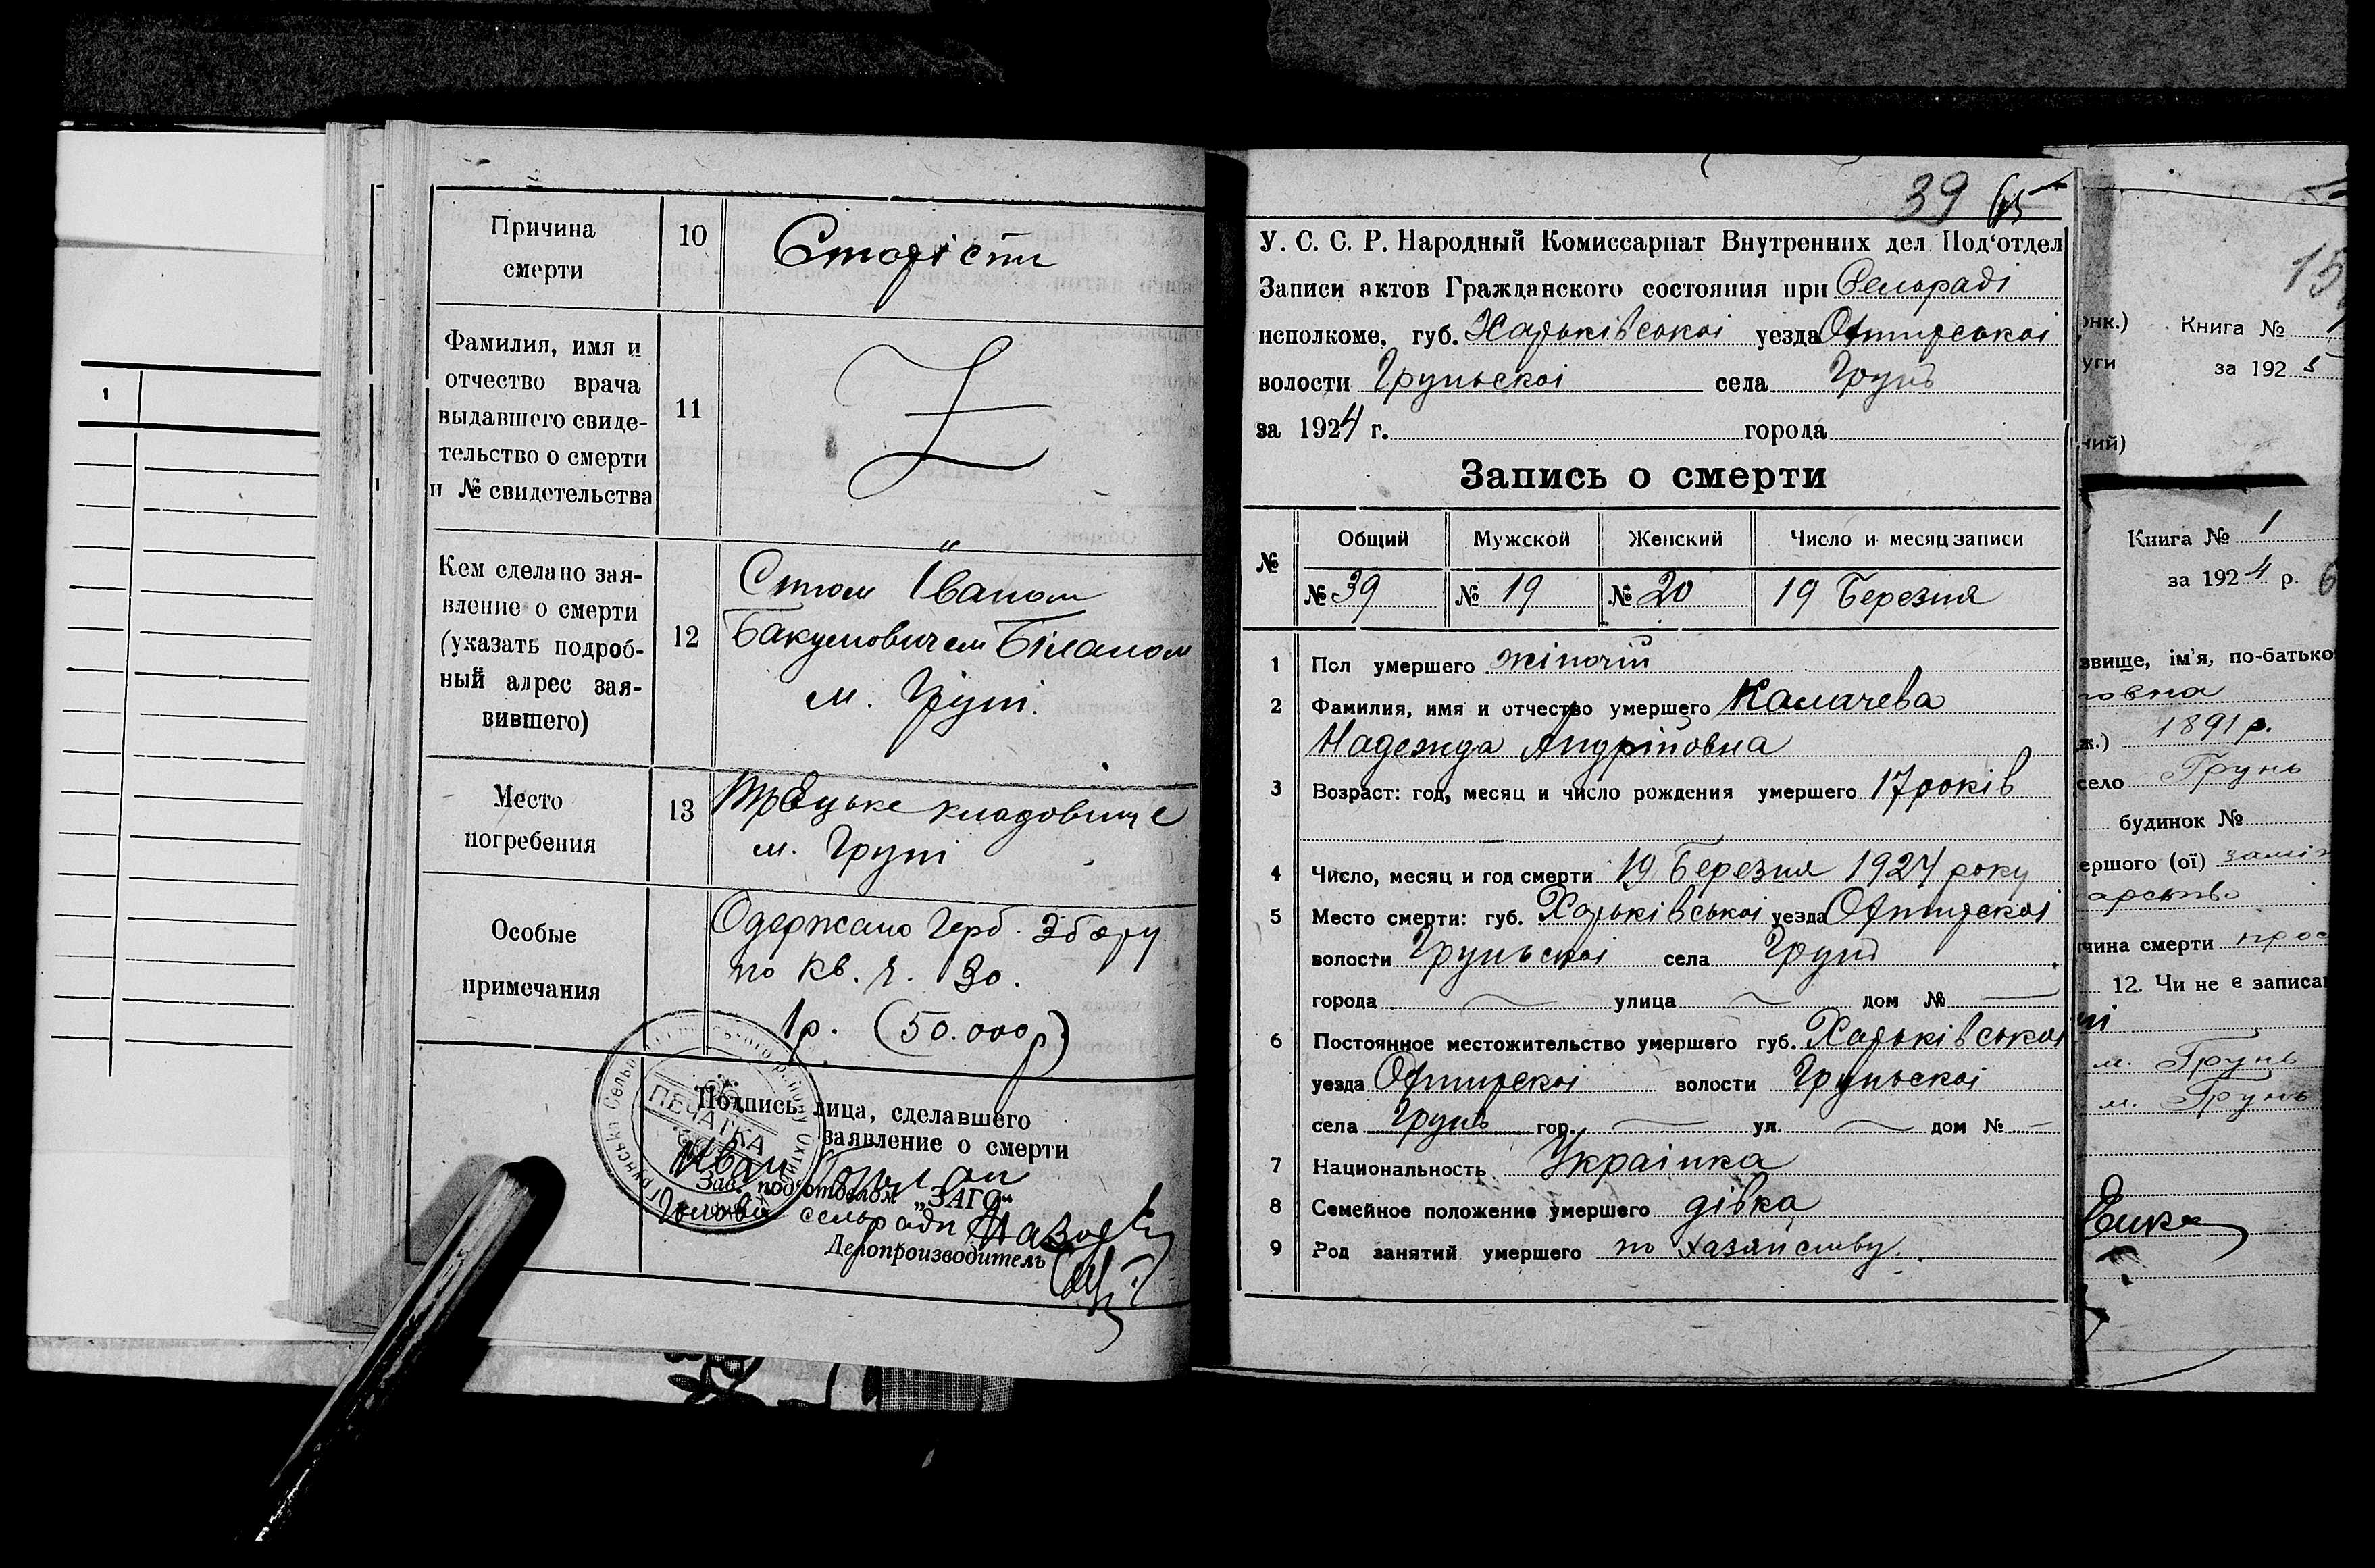 1
Причина
смерти
10
Старість
Фамилия, имя и
отчество врача
выдавшего свиде-
тельство о смерти
и № свидетельства
11
Кем сделано зая-
вление о смерти
(указать подроб-
ный адрес зая-
вившего)
12
Іваном
Бакумовичем Біланом
м. Груні.
Место
погребения
13
кладовище
м. Груні
Особые
примечания
Одержано Герб. Збору
по кв. ч. 30.
1р. (50.000р)
ПЕЧАТКА
Подпись лица, сделавшего
заявление о смерти
Иван Билан
Зав. под'отделом „ЗАГС“
Голова сельради
Делопроизводитель
39 65
У. С. С. Р. Народный Комиссариат Внутренних дел Под'отдел
Записи актов Гражданского состояния при Сельраді
исполкоме. губ. Харьківськоі уезда Охтирськоі
волости Груньскоі села Грунь
за 1924 г. города
Запись о смерти
№ Общий Мужской Женский Число и месяц записи
№ 39 № 19 № 20 19 Березня
1 Пол умершего жіночій
2 Фамилия, имя и отчество умершего Калачева
Надежда Андріївна
3 Возраст: год, месяц и число рождения умершего 17 років
4 Число, месяц и год смерти 19 Березня 1924 року
5 Место смерти: губ. Харьківськоі уезда Охтирскоі
волости Груньскоі села Грунь
города улица дом №
6 Постоянное местожительство умершего губ. Харьківськоі
уезда Охтирскоі волости Груньскоі
села Грунь гор. ул. дом №
7 Национальность Украінка
8 Семейное положение умершего дівка
9 Род занятий умершего по хазяйству.
15
онк.) Книга №
уги за 1925
ний)
Книга № 1
за 1924 р. 6
звище, ім'я, по-батько
овна
ж.) 1891 р.
село Грунь
будинок №
ершого (ої) замі
арство
чина смерти
12. Чи не є записа
м. Грунь
м. Грунь